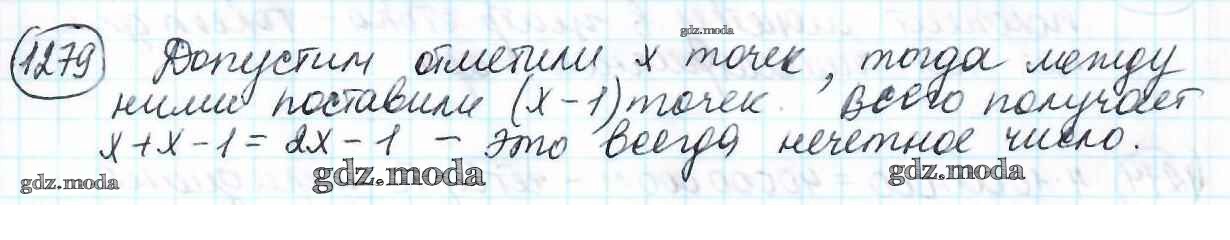 gdz.moda
1279 Допустим отметили x точек, тогда между
ними поставили (x-1) точек. Всего получает
x+x-1=2x-1 - это всегда нечетное число.
gdz.moda gdz.moda gdz.moda